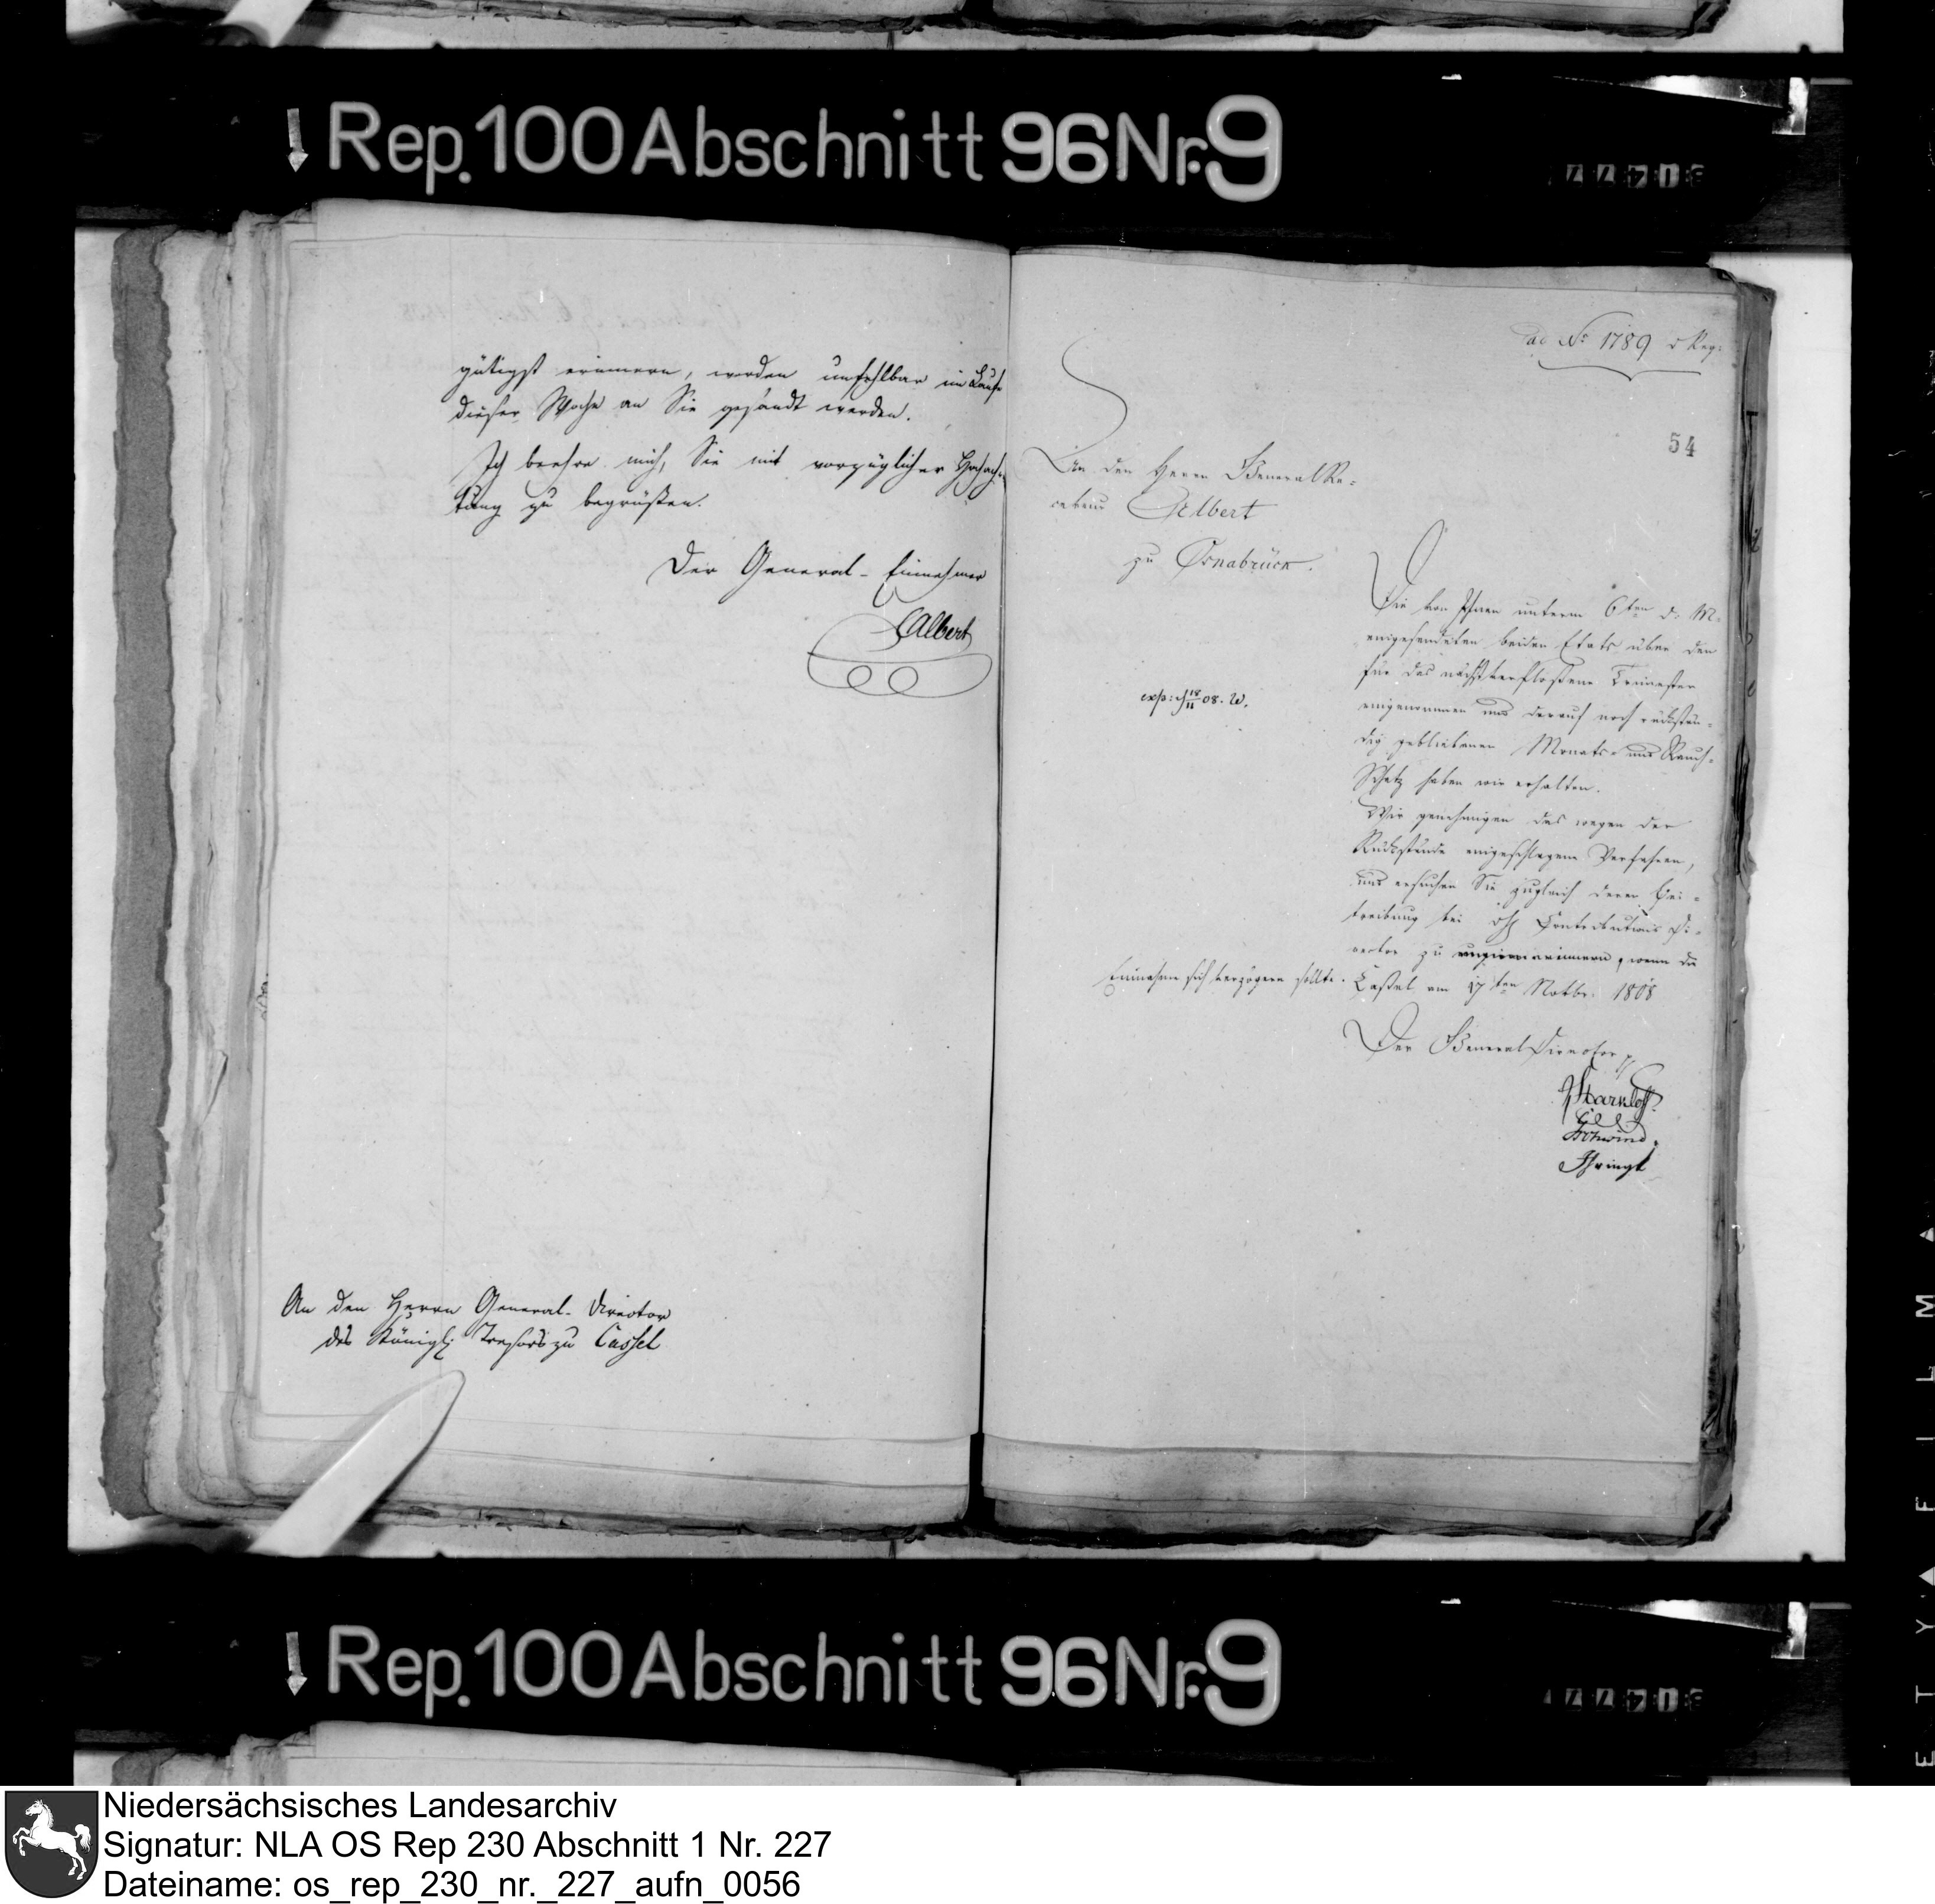 Rep. 100 Abschnitt 96 Nr. 9
gütigst erinnern, werden unfehlbar im Laufe
dieser Woche an Sie gesandt werden.
Ich beehre mich, Sie mit vorzüglicher Hochach-
tung zu begrüßen.
Der General-Einnehmer
Albert
An den Herrn General-Director
des Königl. Tresors zu Cassel
ad No 1789
54
An den Herrn General Re-
ceveur Albert
zu Osnabrück.
exp: 18/11 08. W.
Die von Ihnen unterm 6ten d. M.
eingesendeten beiden Etats über den
für das nächstverfloßene Trimester
eingenommen und darauf noch rückstän-
dig gebliebenen Monats- und Rauch-
Schatz haben wir erhalten.
Wir genehmigen das wegen der
Rückstände eingeschlagene Verfahren,
und ersuchen Sie zugleich deren Bei-
treibung bei Contributions Di-
rector zu erinnern, wenn die
Einnahme sich verzögern sollte.
Caßel am 17ten Novbr. 1808
Der General Director
Starkloff
Schwind.
Rep. 100 Abschnitt 96 Nr. 9
Niedersächsisches Landesarchiv
Signatur: NLA OS Rep 230 Abschnitt 1 Nr. 227
Dateiname: os_rep_230_nr._227_aufn_0056